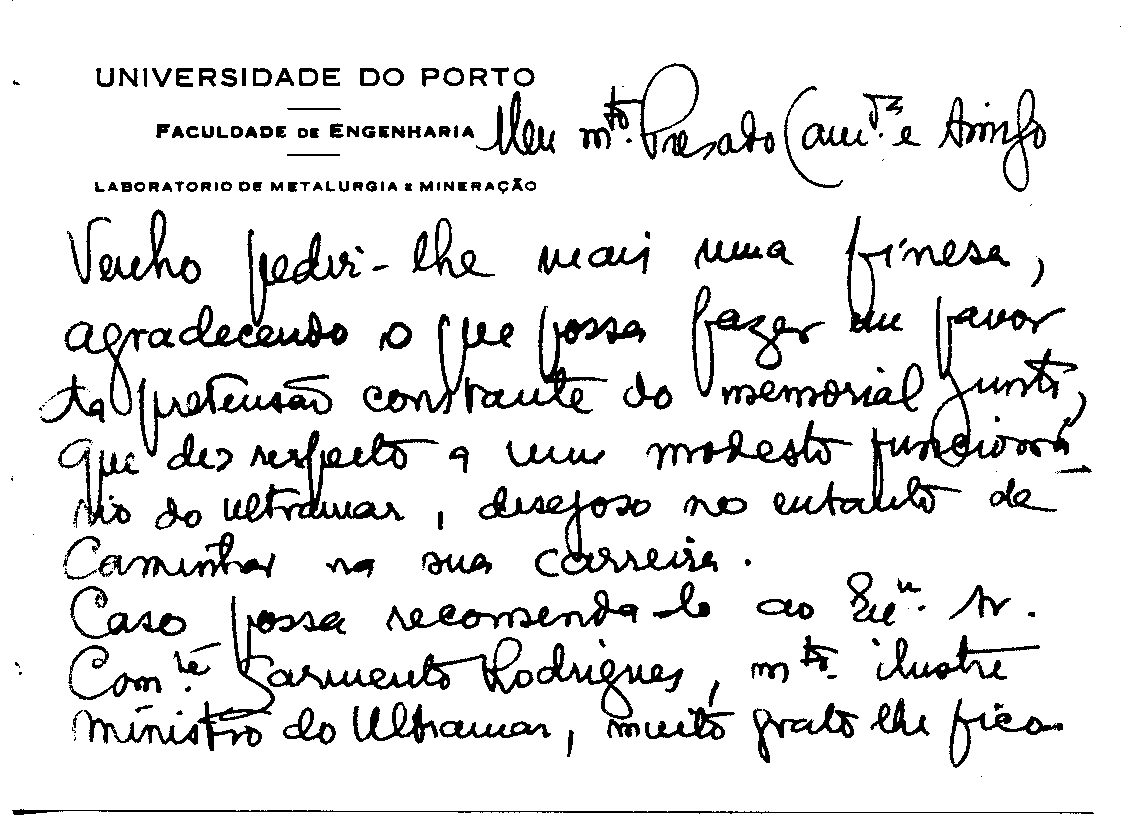 UNIVERSIDADE DO PORTO
FACULDADE DE ENGENHARIA
LABORATORIO DE METALURGIA E MINERAÇÃO
Meu mto. Presado Cam.da e Amigo
Venho pedir-lhe mais uma finesa,
agradecendo o que possa fazer em favor
da pretensão constante do memorial junto,
que diz respeito a um modesto funcioná-
rio do Ultramar, desejoso no entanto de
Caminhar na sua carreira.
Caso possa recomenda-lo ao Exmo. Sr.
Com.te Sarmento Rodrigues, mto. ilustre
ministro do Ultramar, muito grato lhe fico